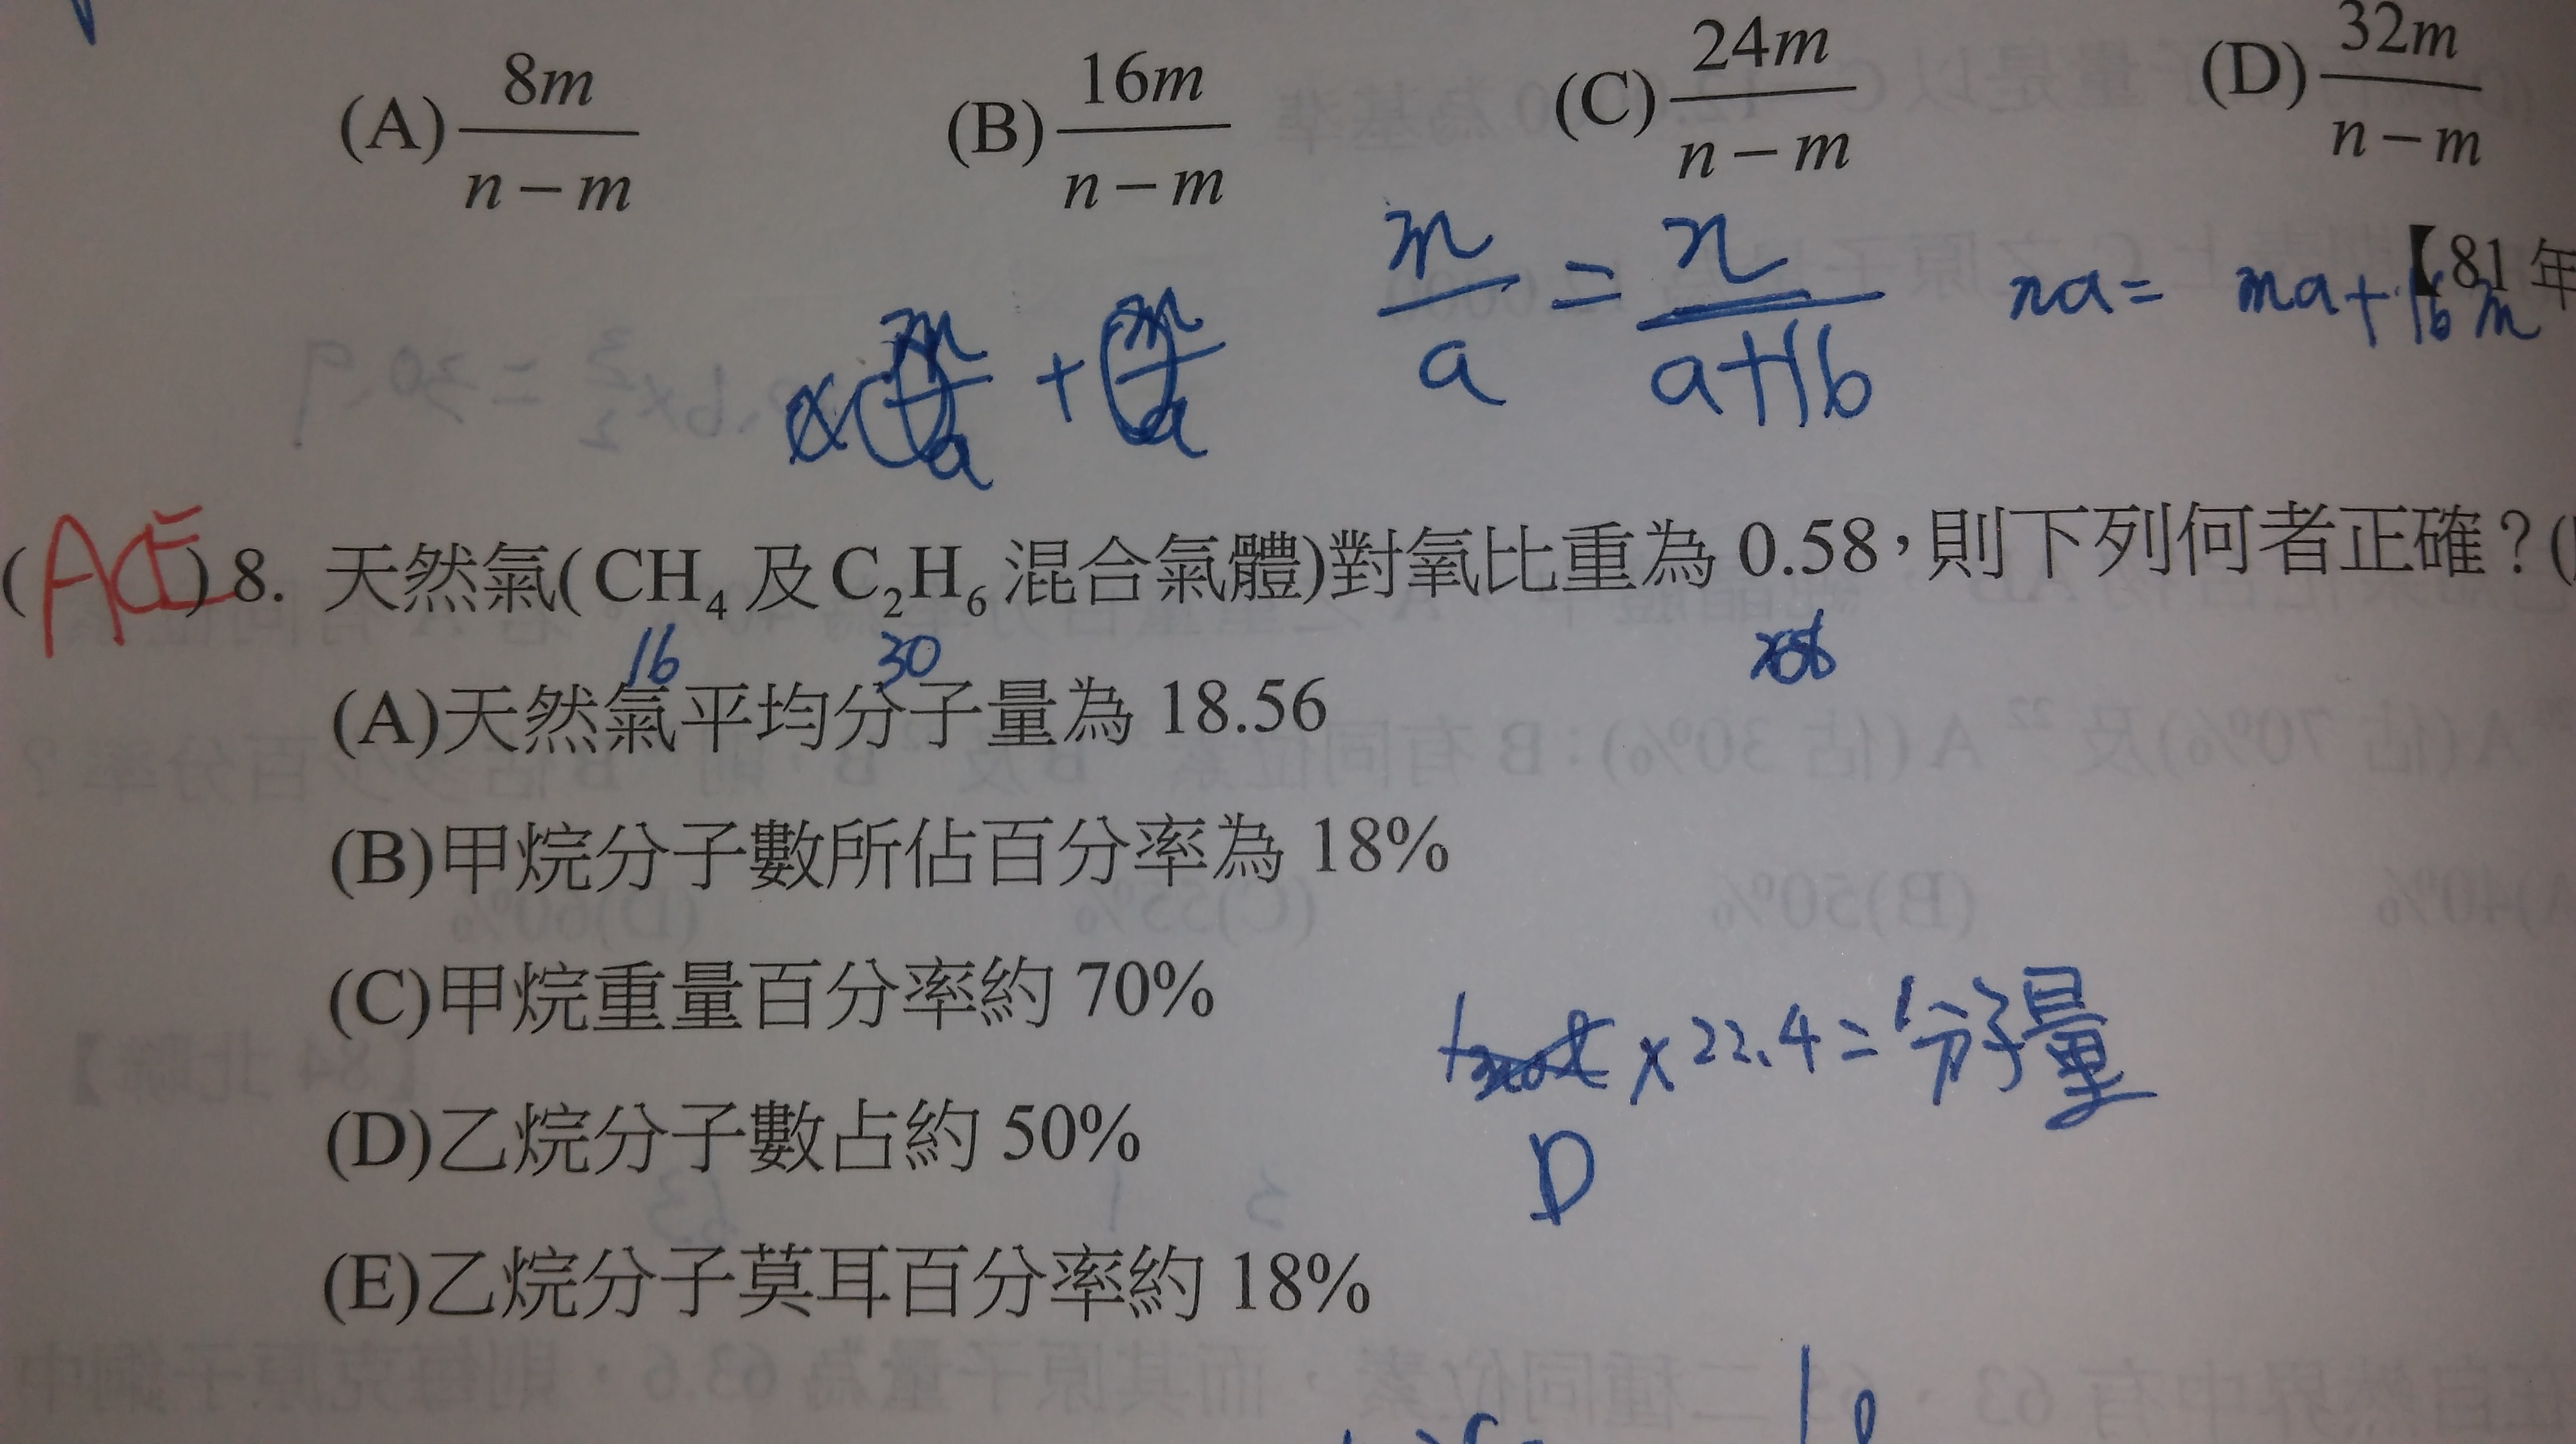 (A) 8m/(n−m) (B) 16m/(n−m) (C) 24m/(n−m) (D) 32m/(n−m)
【81年
m/a + m/a m/a = n/(a+16) na = ma+16m
(ACE) 8. 天然氣(CH₄及C₂H₆混合氣體)對氧比重為 0.58，則下列何者正確？(
16 30
(A)天然氣平均分子量為 18.56
(B)甲烷分子數所佔百分率為 18%
(C)甲烷重量百分率約 70%
x 22.4 = 分子量
(D)乙烷分子數占約 50%
D
(E)乙烷分子莫耳百分率約 18%